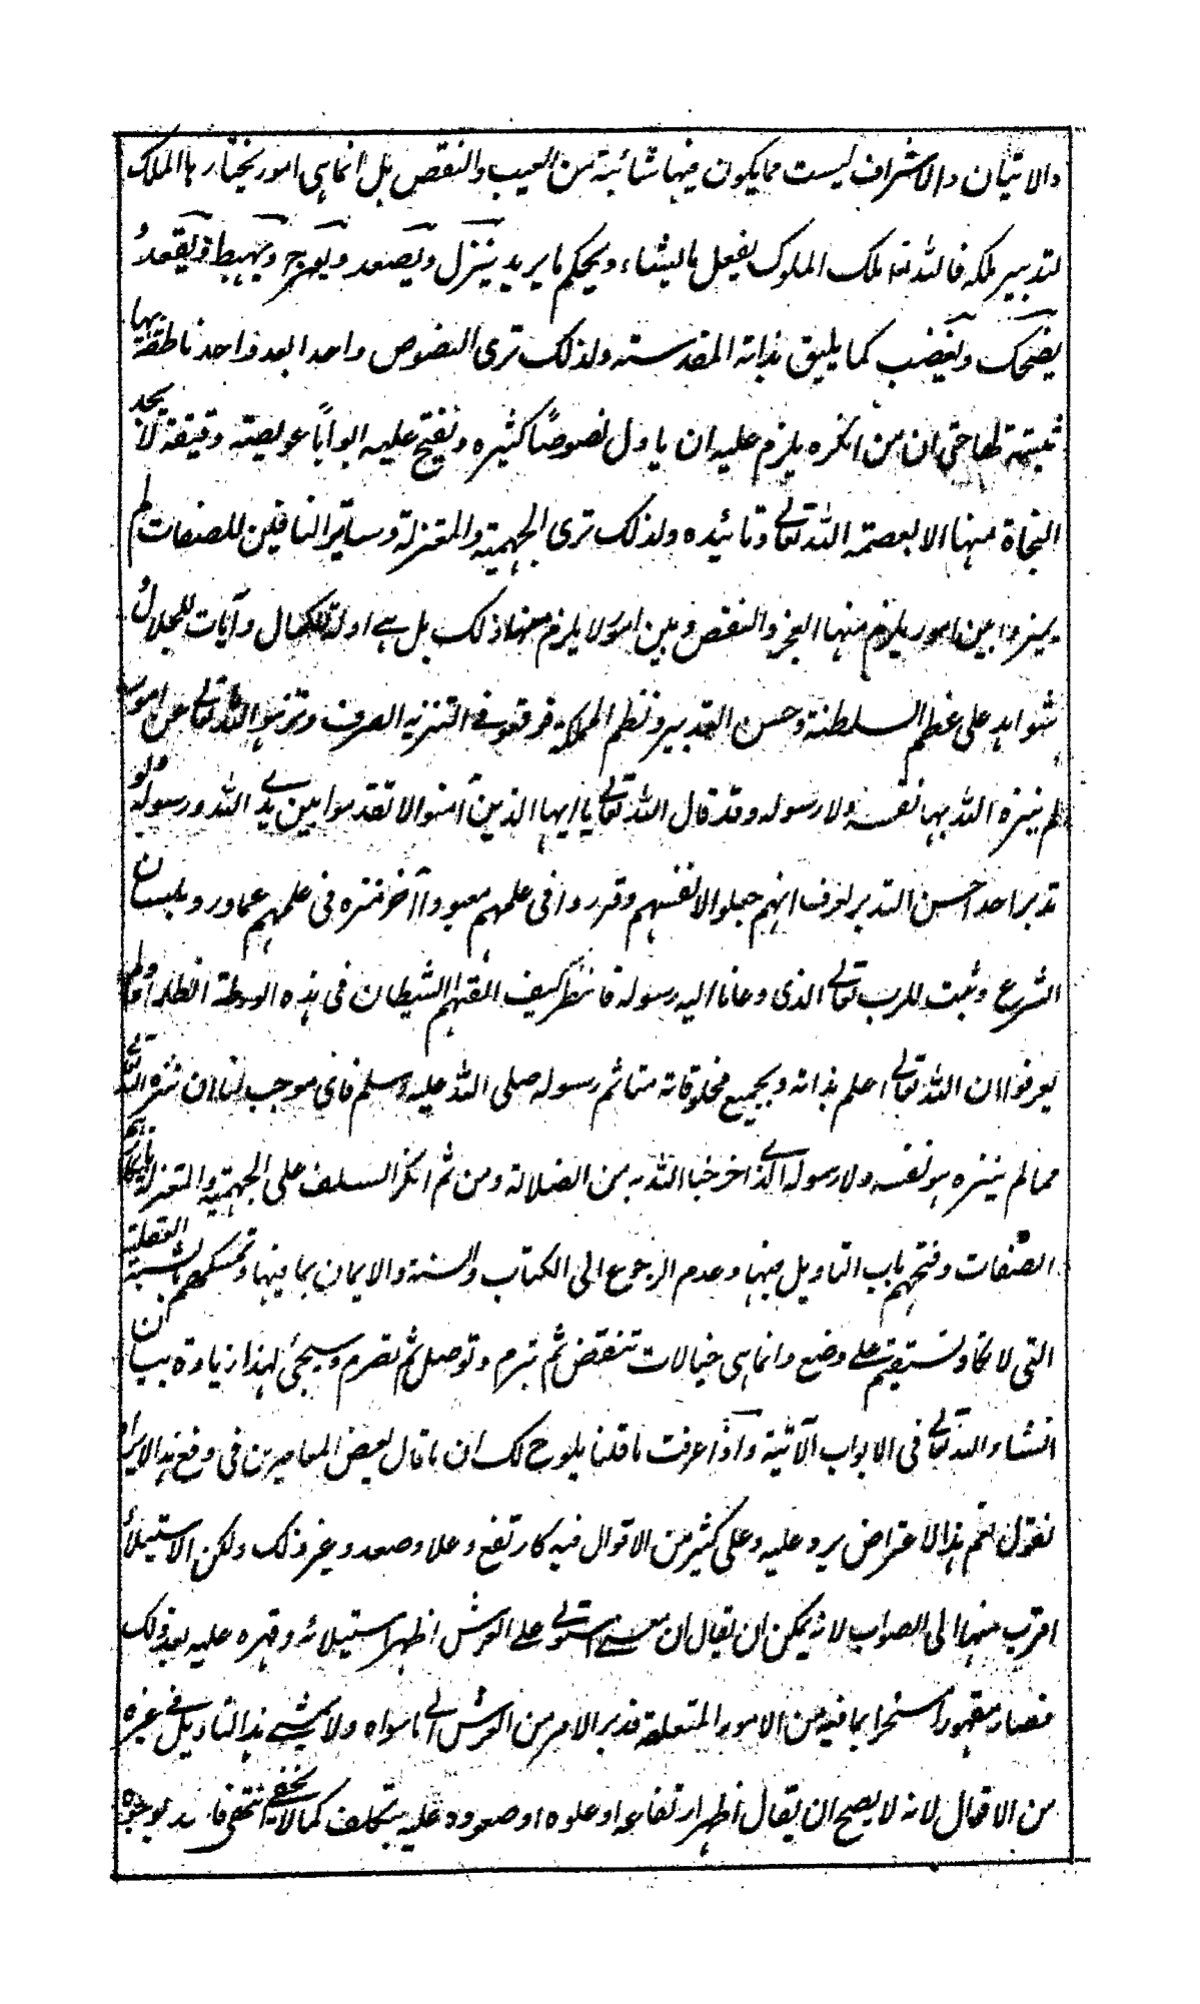 والاتيان والاشراف ليست مما يكون فيها شائبة من العيب والنقص بل انما هي امور يختارها الملك
لتدبير ملكه فالله تعا ملك الملوك يفعل ما يشاء ويحكم ما يريد ينزل ويصعد ويعرج ويهبط ويقعد و
يضحك ويغضب كما يليق بذاته المقدسته ولذلك ترى النصوص واحدا بعد واحد ناطقة بها
مثبتة لها حتى ان من انكره يلزم عليه ان ياول نصوصًا كثيره ونفتح عليه ابوابًا عويصته دقيقة لا يجد
النجاة منها الا بعصمة الله تعالى وتائيده ولذلك ترى الجهمية والمعتزلة وسائر النافين للصفات لم
يميزوا بين امور يلزم منها العجز والنقص وبين امور لا يلزم منها ذلك بل هے ادلة للكمال وآيات للجلال و
شواهد على عظم السلطنة وحسن التدبير ونظم المملكة فوقعوا في التنزيه الصرف ونزهوا الله تعالى عن امور
لم ينزه الله بها نفسه ولا رسوله وقد قال الله تعالى يا ايها الذين آمنوا لا تقدموا بين يدي الله ورسوله ولو
تدبر احد احسن التدبر لعرف انهم جعلوا لانفسهم وقرروا في علمهم معبودا آخر ننزه في علمهم عما ورد بلسان
الشرع وثبت للرب تعالى الذي دعانا اليه رسوله فانظر كيف القهم الشيطان في هذه الورطة الظلماء ولم
يعرفوا ان الله تعالى اعلم بذاته وبجميع مخلوقاته منا ثم رسوله صلى الله عليه وسلم فاي موجب لنا ان ننزه الله تعالى
مما لم ينزه هو نفسه ولا رسوله الذي اخرجنا الله به من الضلالة ومن ثم انكر السلف على الجهمية والمعتزلة
الصفات وفتحهم باب التاويل فيها وعدم الرجوع الى الكتاب والسنة والايمان بما فيها وتمسكهم بالشبه العقلية
التي لا تكاد تستقيم على وضع وانما هي خيالات تنقض ثم تبرم وتوصل ثم تصرم وسيجئ لهذا زيادة بيان
انشاء الله تعالى في الابواب الآتية واذا عرفت ما قلنا يلوح لك ان ما قال بعض المعاصرين في دفع هذا الايراد
نقول نعم هذا الاعتراض يرد عليه وعلى كثير من الاقوال فيه كارتفع وعلا وصعد وغير ذلك ولكن الاستيلاء
اقرب منها الى الصواب لانه يمكن ان يقال ان معنے استولى على العرش اظهر استيلائه وقهره عليه بعد ذلك
فصار مقهورا مسخرا بما فيه من الامور المتعلقة قدبر الامر من العرش الى ما سواه ولا يمشے هذا التاويل فى غيره
من الاقوال لانه لا يصح ان يقال اظهر ارتفاعه او علوه او صعوده عليه بتكلف كما لا يخفى انتهى فاسد بوجوه